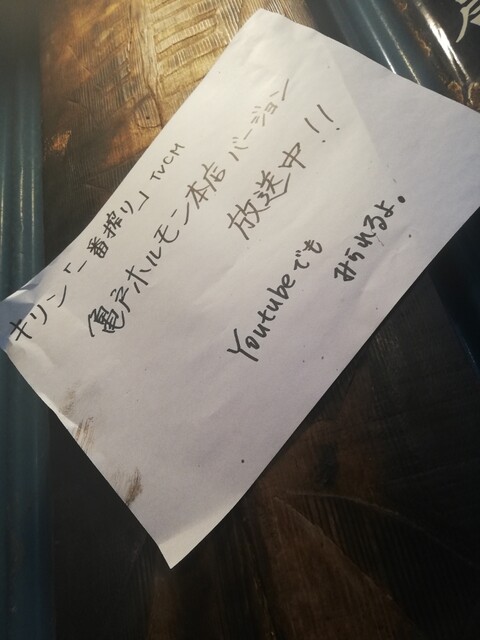 キリン「一番搾り」TVCM
亀戸ホルモン本店バージョン
放送中!!
Youtubeでも
みられるよ。